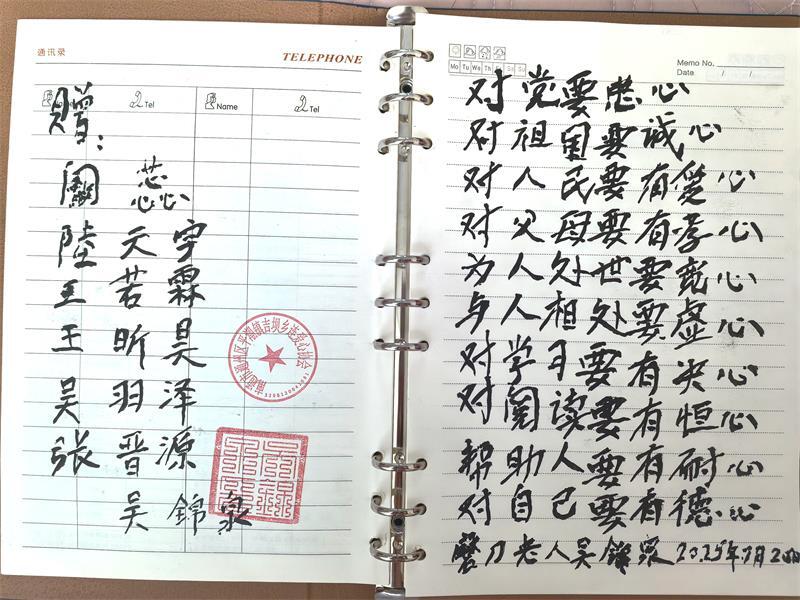 通讯录
TELEPHONE
Tel
Name
Tel
赠:
陸天宇
王若霖
王昕昊
吴羽泽
张晋源
吴錦泉
Memo No.
Mo Tu We Th Fr Sa Su
Date / /
对党要忠心
对祖国要诚心
对人民要有爱心
对父母要有孝心
为人处世要宽心
与人相处要虚心
对学习要有决心
对阅读要有恒心
帮助人要有耐心
对自己要有德心
磨刀老人吴錦泉2025年7月2